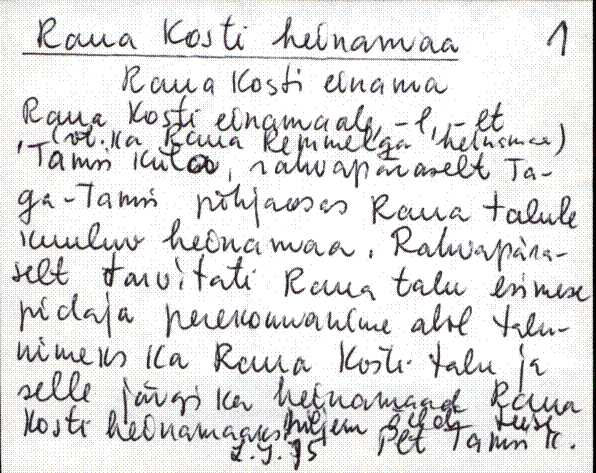 Raua Kosti heinamaa 1
Raua Kosti einama
Raua Kosti einamaale, -l, -lt
(vt. ka Raua Remmelga heinamaa)
, Tamm küla, rahvapäraselt Ta-
ga-Tamm põhjaosas Raua talule
kuuluv heinamaa. Rahvapära-
selt tarvitati Raua talu esimese
pidaja perekonnanime abil talu-
nimeks ka Raua Kosti talu ja
selle järgi ka heinamaad Raua
Kosti heinamaaks hiljem
Plt Tamm k.